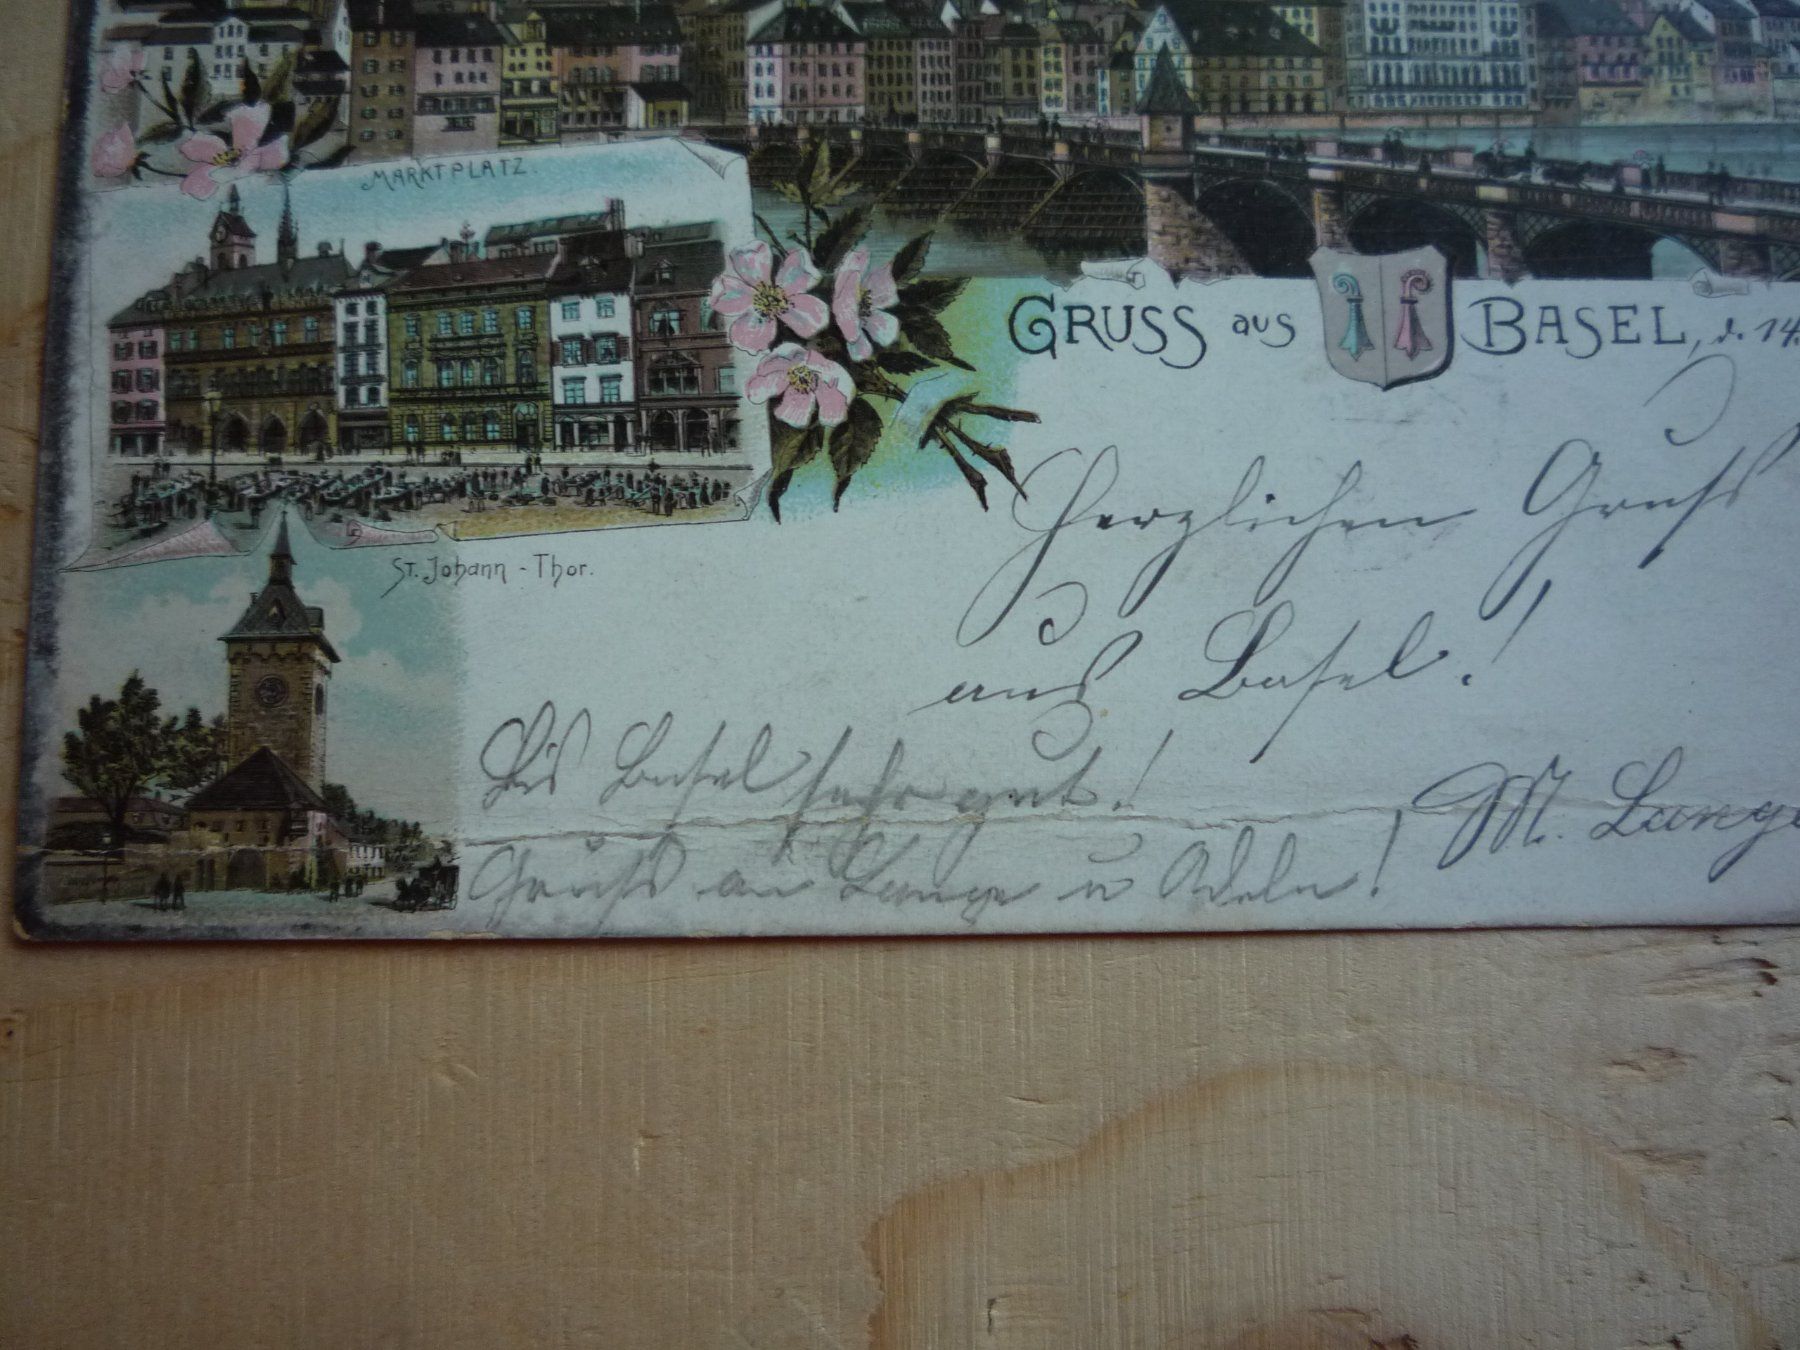 MARKTPLATZ.
GRUSS aus BASEL, d. 14.
ST. Johann - Thor.
Herzlichen Gruß
aus Basel!
Bis Basel sehr gut!
M. Lange
Gruß an Lange u Adele!